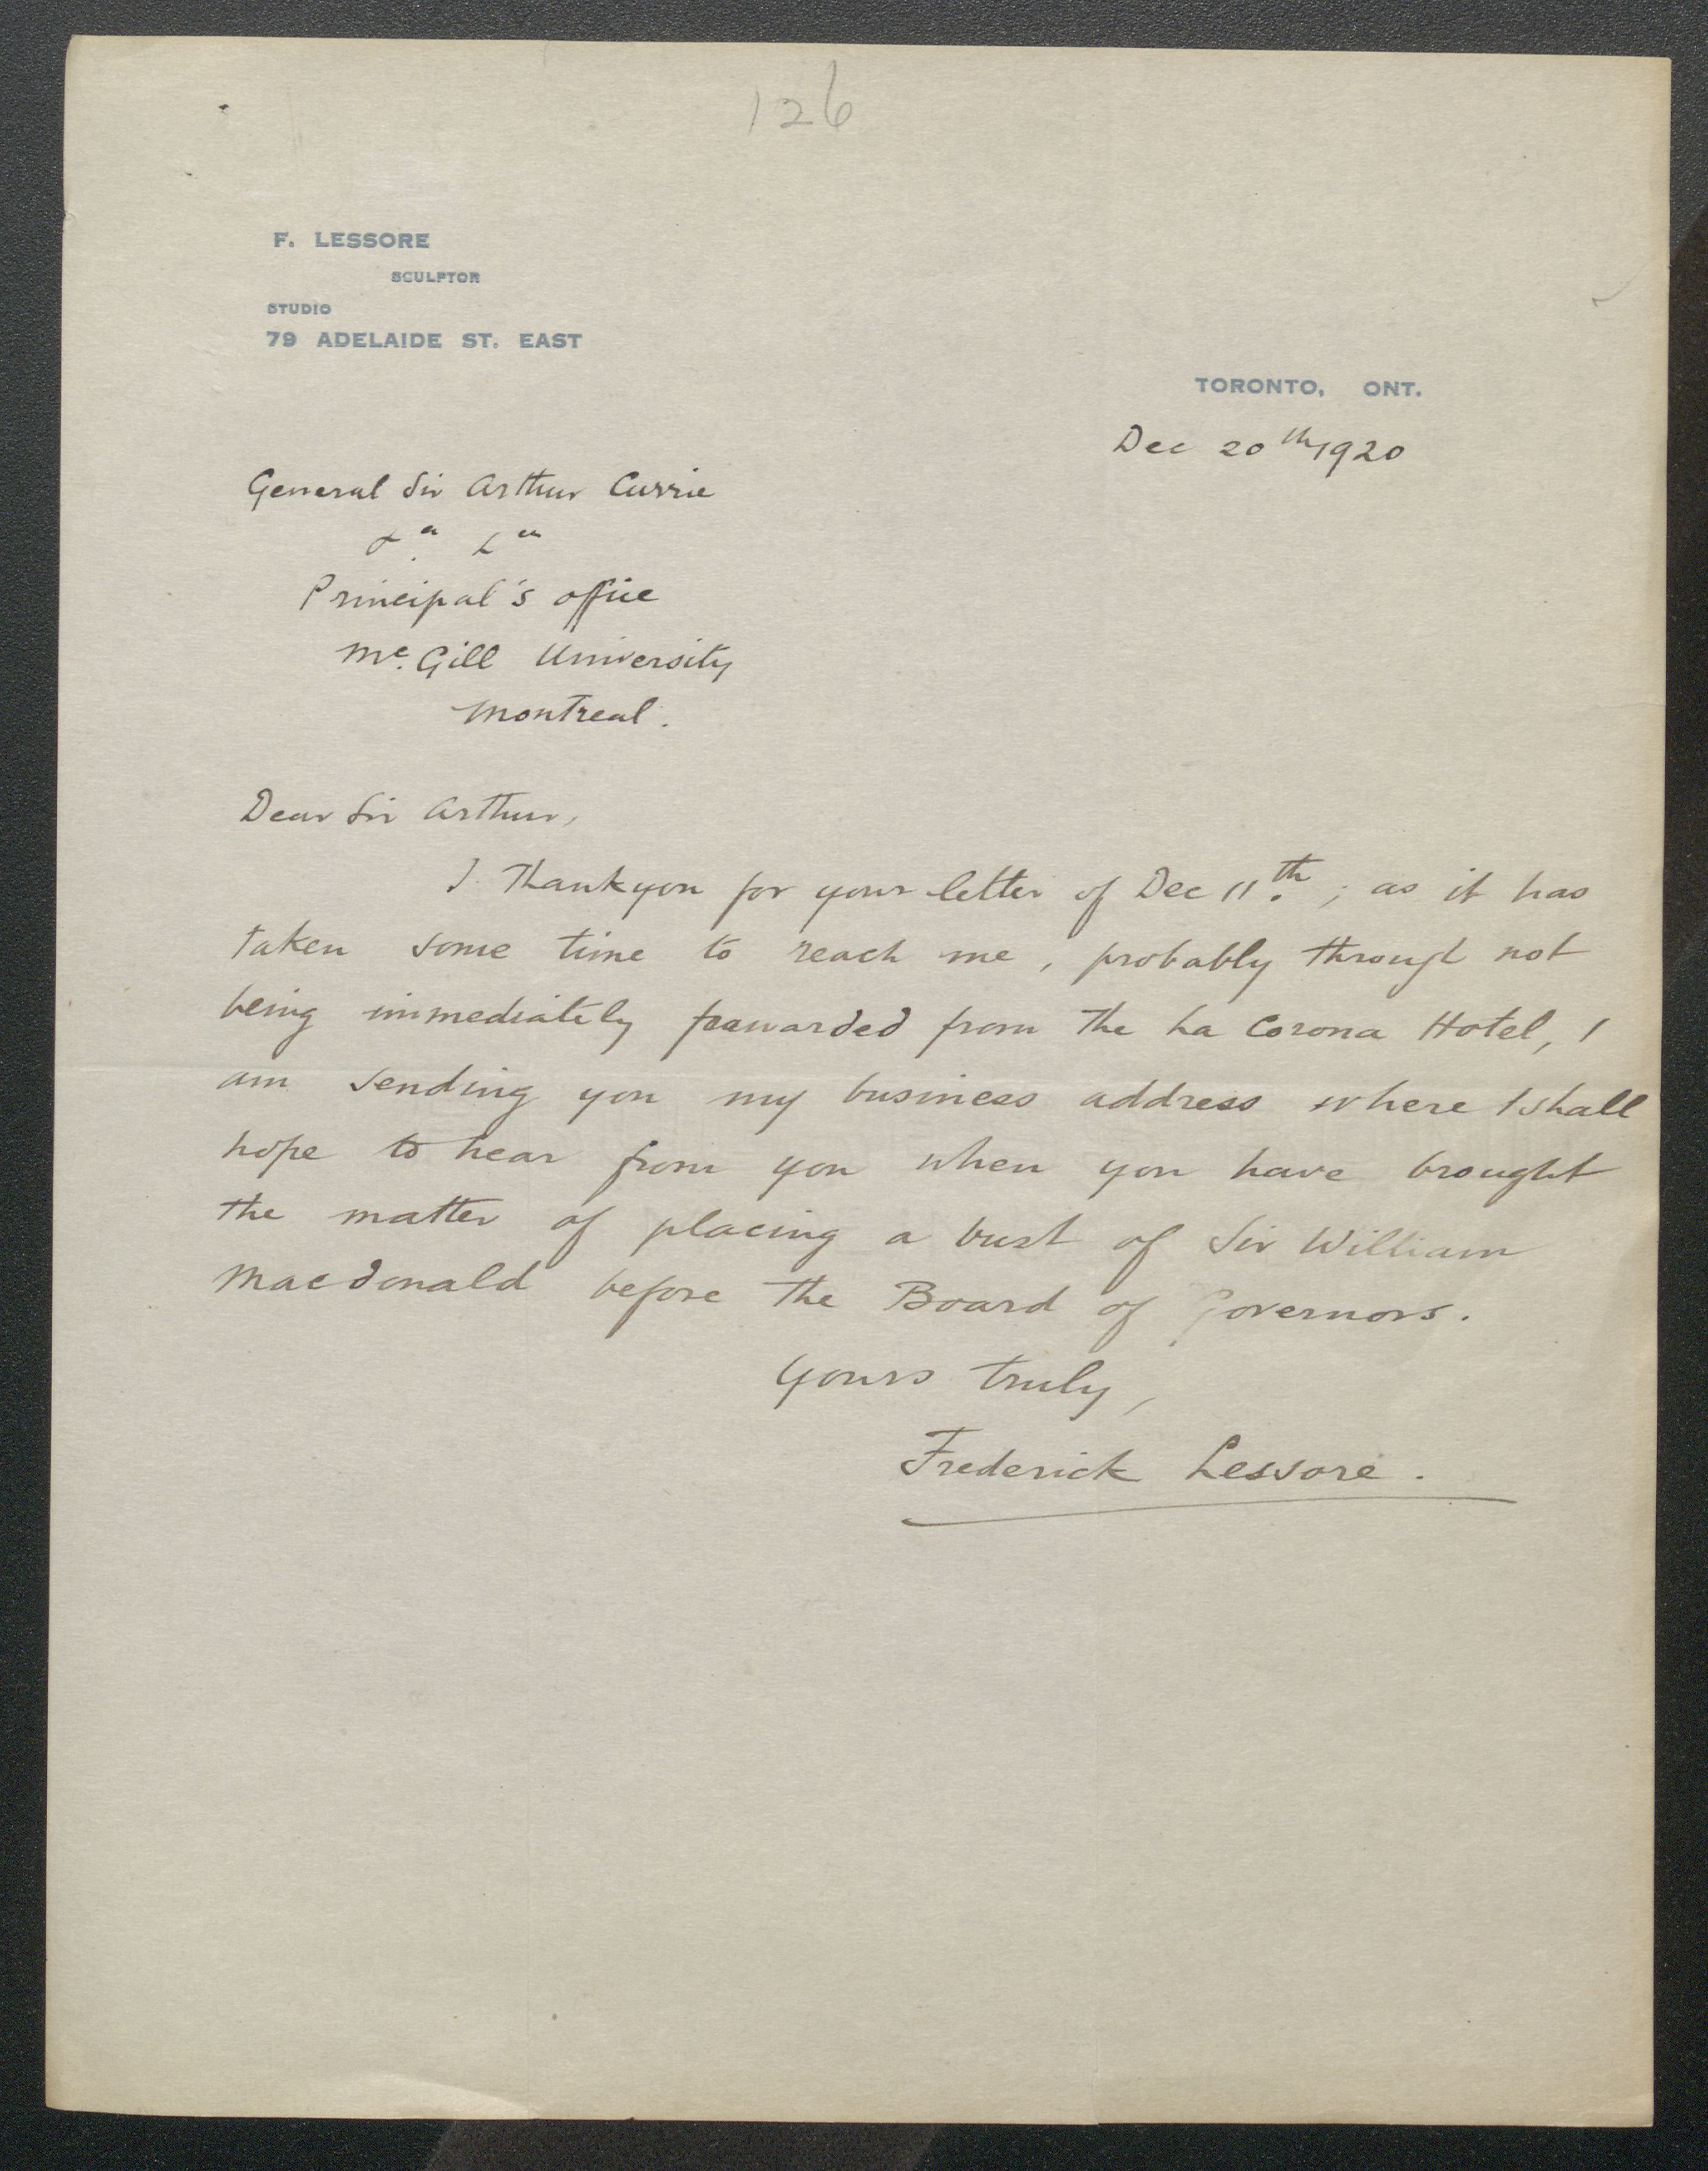 126
F. LESSORE
SCULPTOR
STUDIO
79 ADELAIDE ST. EAST
TORONTO, ONT.
Dec 20th 1920
General Sir Arthur Currie
Principal's office
Mc. Gill University
Montreal.
Dear Sir Arthur,
I thank you for your letter of Dec 11th.; as it has
taken some time to reach me, probably through not
being immediately forwarded from the La Corona Hotel, I
am sending you my business address where I shall
hope to hear from you when you have brought
the matter of placing a bust of Sir William
Macdonald before the Board of Governors.
Yours truly,
Frederick Lessore.